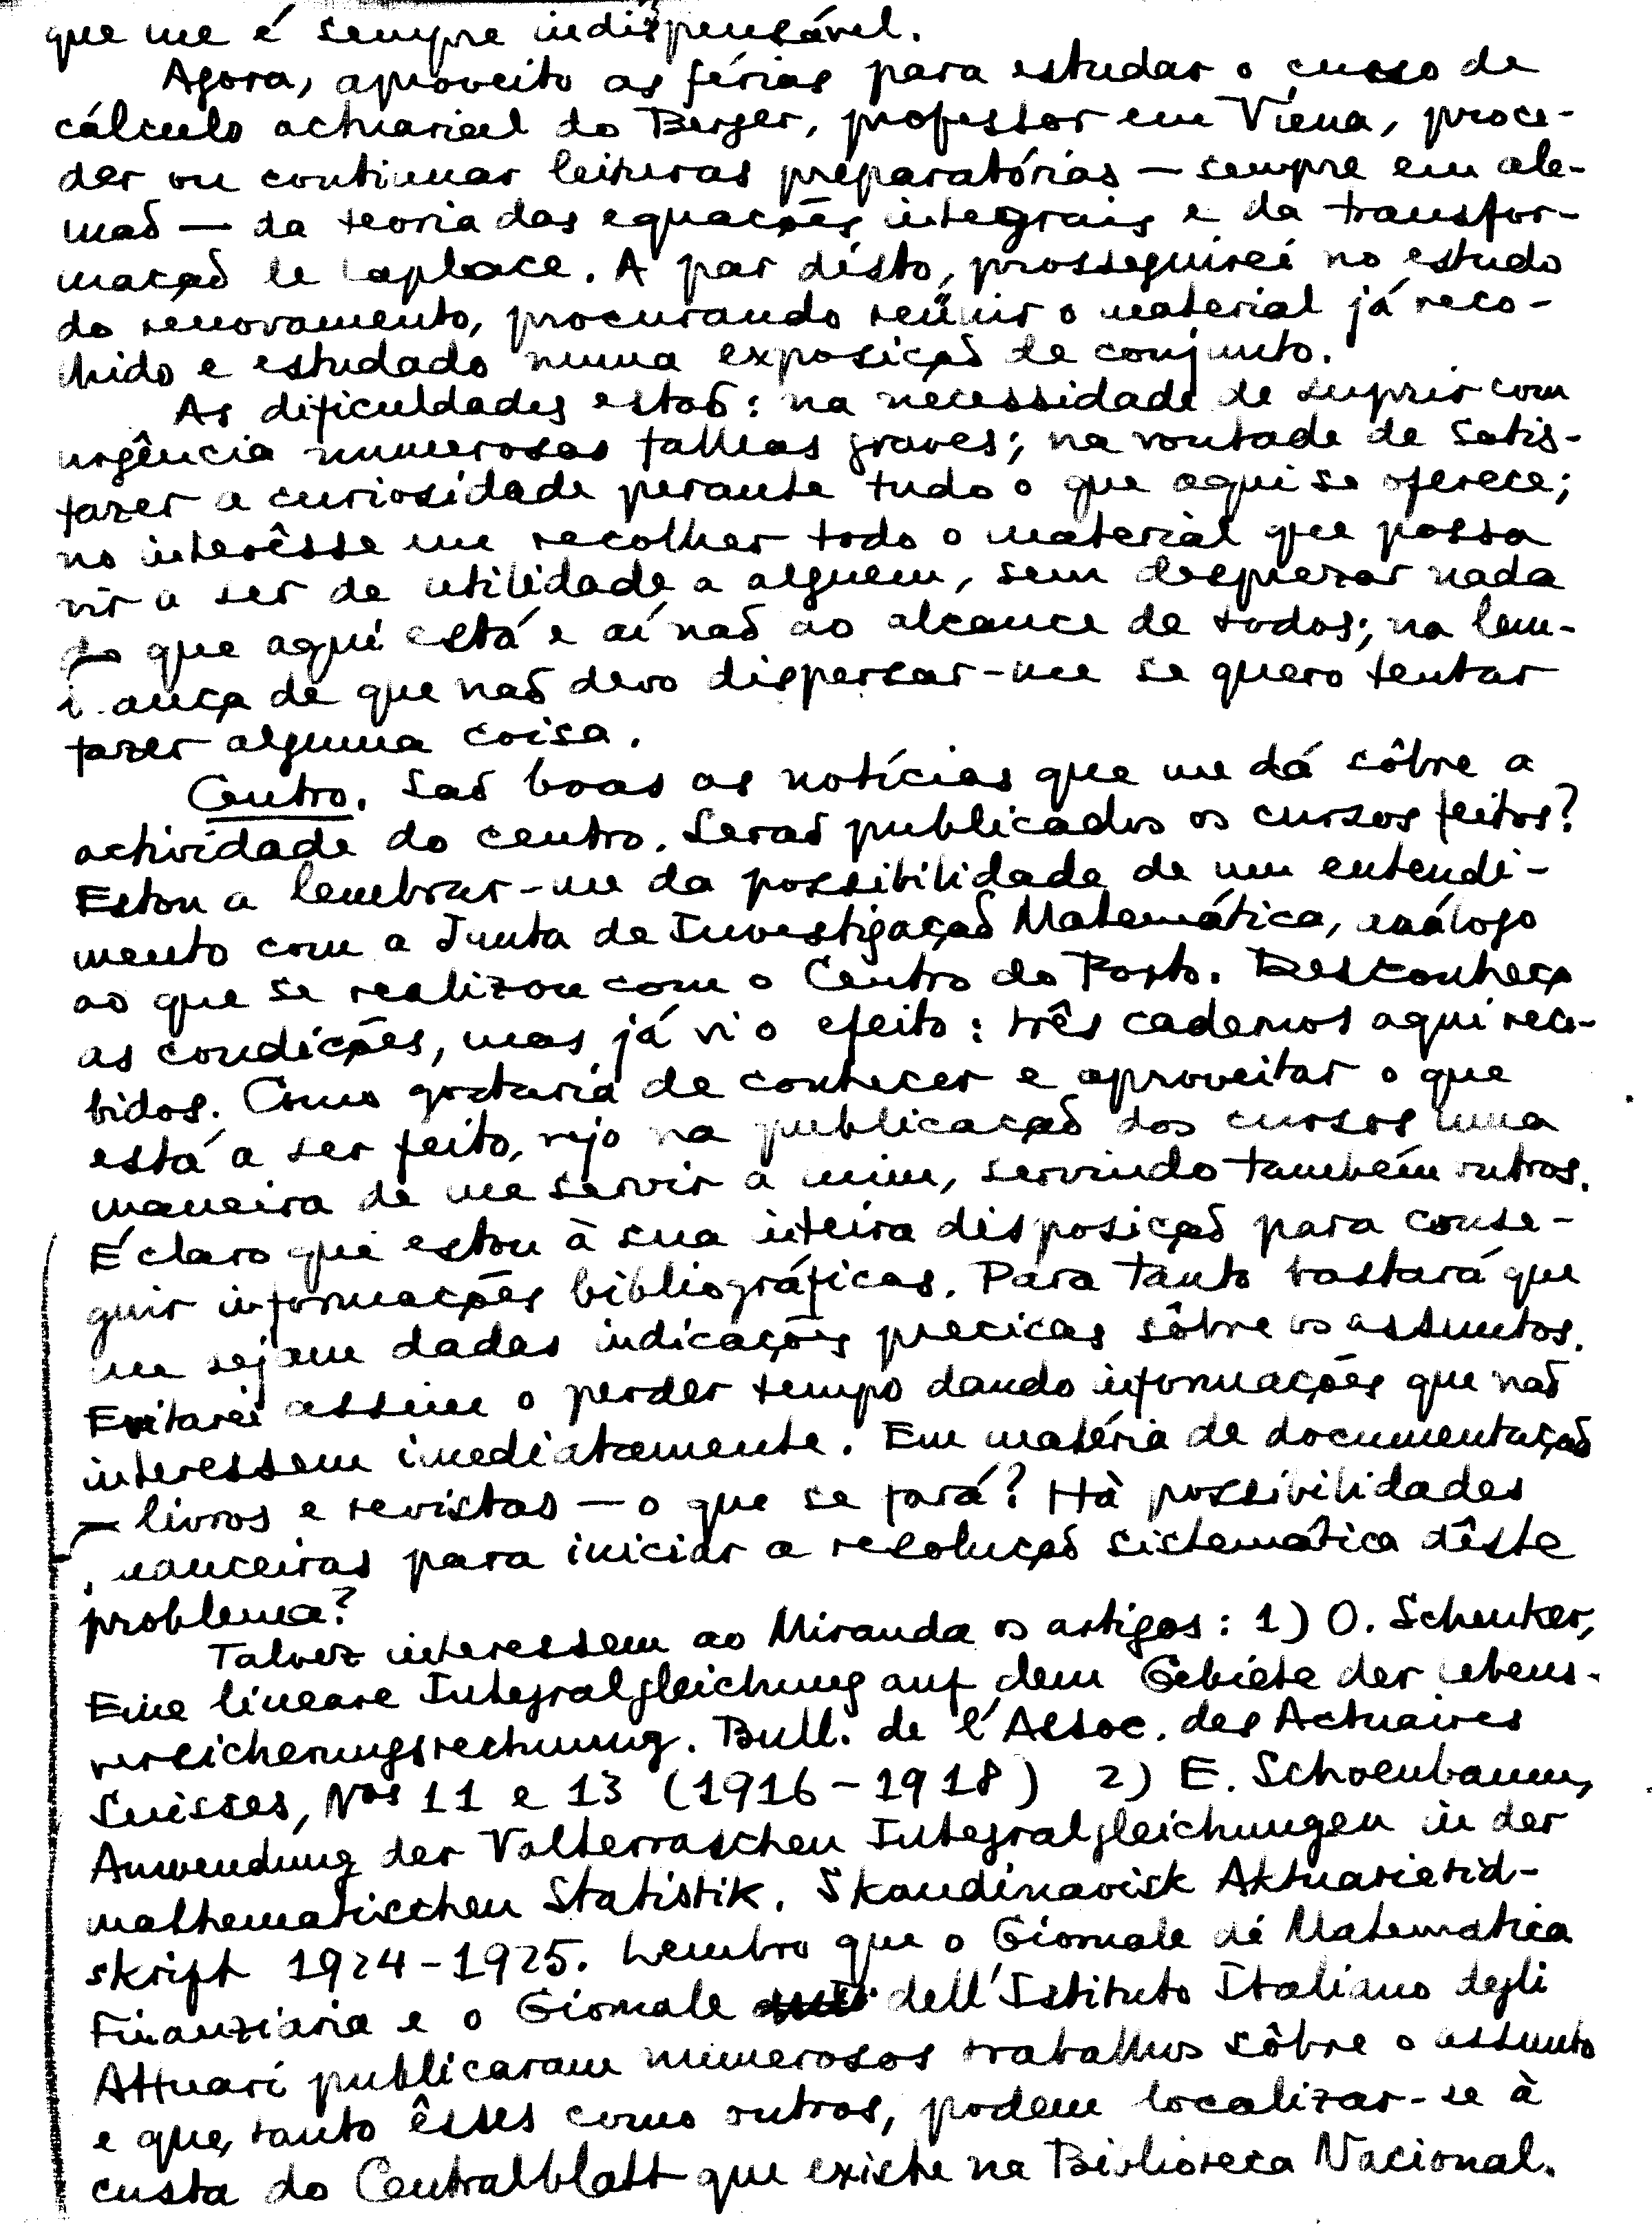 que me é sempre indispensável.
Agora, aproveito as férias para estudar o curso de
cálculo actuarial do Berger, professor em Viena, proce-
der ou continuar leituras preparatórias — sempre em ale-
mão — da teoria das equações integrais e da transfor-
mação de Laplace. A par disto, prosseguirei no estudo
do renovamento, procurando reünir o material já reco-
lhido e estudado numa exposição de conjunto.
As dificuldades estão: na necessidade de suprir com
urgência numerosas falhas graves; na vontade de satis-
fazer a curiosidade perante tudo o que aqui se oferece;
no interêsse em recolher todo o material que possa
vir a ser de utilidade a alguem, sem desprezar nada
do que aqui está e aí não ao alcance de todos; na lem-
rança de que não devo dispersar-me se quero tentar
fazer alguma coisa.
Centro. São boas as notícias que me dá sôbre a
actividade do centro. Serão publicados os cursos feitos?
Estou a lembrar-me da possibilidade de um entendi-
mento com a Junta de Investigação Matemática, análogo
ao que se realizou com o Centro do Porto. Desconheço
as condições, mas já vi o efeito: três cadernos aqui rece-
bidos. Como gostaria de conhecer e aproveitar o que
está a ser feito, vejo na publicação dos cursos uma
maneira de me servir a mim, servindo também outros.
É claro que estou à sua inteira disposição para conse-
guir informações bibliográficas. Para tanto bastará que
me sejam dadas indicações precisas sôbre os assuntos.
Evitarei assim o perder tempo dando informações que não
interessem imediatamente. Em matéria de documentação
— livros e revistas — o que se fará? Há possibilidades
nanceiras para iniciar a resolução sistemática dêste
problema?
Talvez interessem ao Miranda os artigos: 1) O. Schenker,
Eine lineare Integralgleichung auf dem Gebiete der Lebens-
versicherungsrechnung. Bull. de l'Assoc. des Actuaires
Suisses, Nos 11 e 13 (1916-1918) 2) E. Schoenbaum,
Anwendung der Volterraschen Integralgleichungen in der
mathematischen Statistik. Skandinavisk Aktuarietid-
skrift 1924-1925. Lembro que o Giornale di Matematica
Finanziaria e o Giornale dell'Istituto Italiano degli
Attuari publicaram numerosos trabalhos sôbre o assunto
e que, tanto êsses como outros, podem localizar-se à
custa do Centralblatt que existe na Biblioteca Nacional.